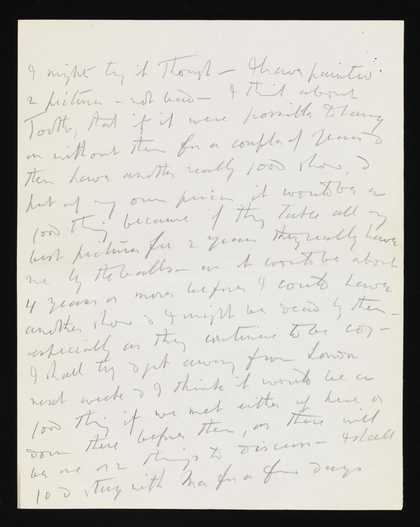 I might try it though – I have painted
2 pictures – not bad – I think about
Tooth, that if it were possible to carry
on without them for a couple of years &
then have another really good show, &
put up my own prices it would be a
good thing because if they take all my
best pictures for 2 years they really have
me by the balls – as it would be about
4 years or more before I could have
another show & I might be dead by then –
especially as they continue to be
I shall try & get away from London
next week & I think it would be a
good thing if we met either up here or
down there before then, as there will
be one or 2 things to discuss – I shall
go & stay with Ma for a few days